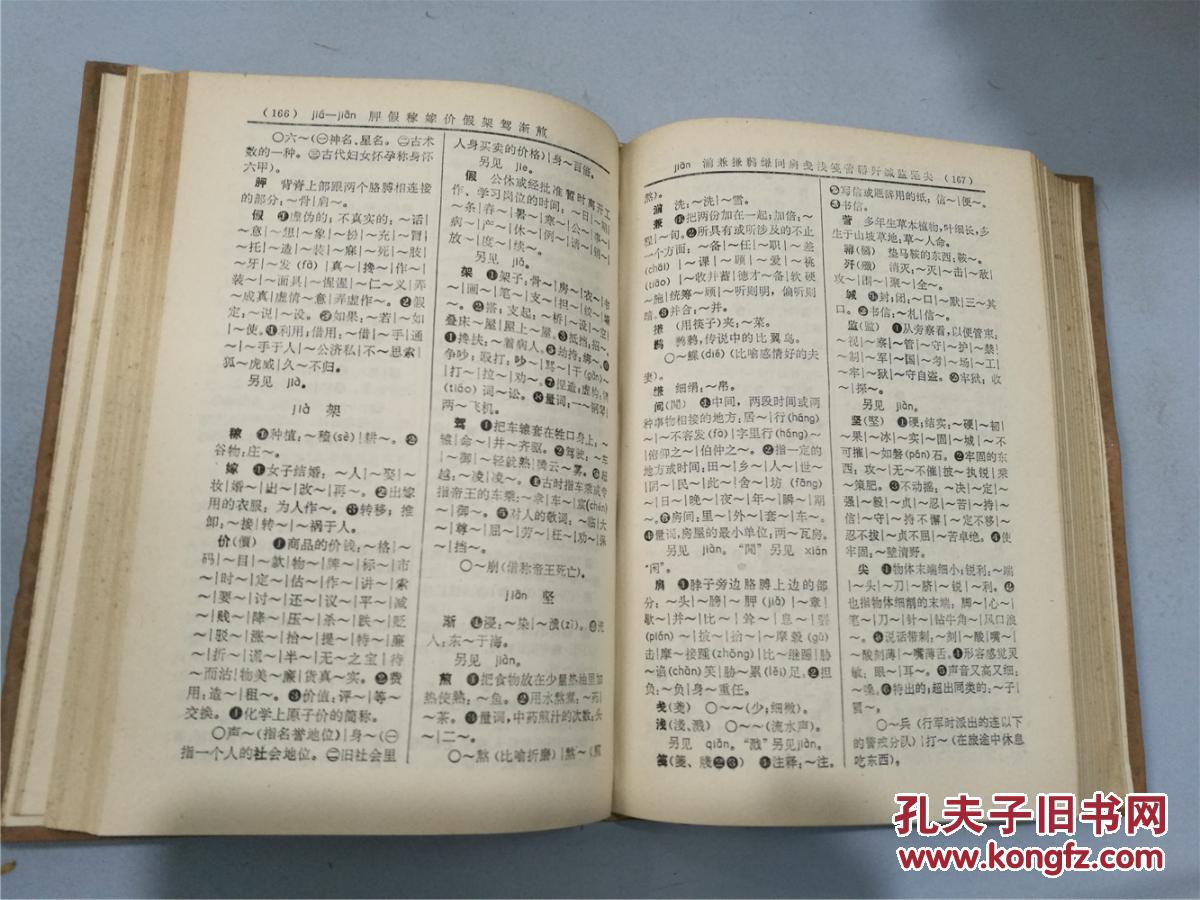 (166) jiá—jiān 胛假稼嫁价假架驾渐煎
〇六～(㊀神名、星名。㊁古术
数的一种。㊂古代妇女怀孕称身怀
六甲)。
胛 背脊上部跟两个胳膊相连接
的部分:～骨|肩～。
假 ❶虚伪的;不真实的:～话|
～意|～想|～象|～份|～充|～冒|
～托|～造|～装|～寐|～死|～肢|
～牙|～发(fà)|真～|搀～|作～|
装～|～面具|～惺惺|～仁～义|弄
～成真|虚情～意|弄虚作～。❷假
定:～说|～设。❸如果:～若|～如
|～使。❹利用;借用:～借|～手|通
～|～手于人|～公济私|不～思索|
狐～虎威|久～不归。
另见 jià。
jià 架
稼 ❶种植:～穑(sè)|耕～。❷
谷物:庄～。
嫁 ❶女子结婚:～人|～娶|～
妆|婚～|出～|改～|再～。❷出嫁
用的衣服:为人作～。❸转移;推
卸:～接|转～|～祸于人。
价(價) ❶商品的价钱:～格|～
码|～目|～款|物～|牌～|标～|市
～|时～|定～|估～|作～|讲～|索
～|要～|讨～|还～|议～|平～|减
～|残～|降～|压～|杀～|跌～|贬
～|驳～|涨～|抬～|提～|特～|廉
～|折～|谎～|半～|无～之宝|待
～而沽|物美～廉|货真～实。❷费
用:造～|租～。❸价值:评～|等～
交换。❹化学上原子价的简称。
〇声～(指名誉地位)|身～(㊀
指一个人的社会地位。㊁旧社会里
人身买卖的价格)|身～百倍。
另见 jie。
假 公休或经批准暂时离开工
作、学习岗位的时间:～日|～期|
～条|春～|暑～|寒～|公～|事～|
病～|产～|休～|例～|请～|销～|
放～|度～|续～。
另见 jiǎ。
架 ❶架子:骨～|房～|衣～|书
～|画～|笔～|支～|担～|绞～|
～。❷搭;支起:～桥|～设|～空|
叠床～屋|屋上～屋。❸抵挡:招～。
❹搀扶:～着病人。❺劫持:绑～。❻
争吵;殴打:吵～|骂～|干(gàn)～
|打～|拉～|劝～。❼捏造;虚构:
(tiáo)词～讼。❽量词:一～钢琴|
两～飞机。
驾 ❶把车辕套在牲口身上:～
辕|～命～|并～齐驱。❷驾驶:～车
|～御|～轻就熟|腾云～雾。❸超
越:～凌|凌～。❹古时指车乘或专
指帝王的车乘:～幸|车～|宸(chén)
～|～御～。❺对人的敬词:～临|大
～|尊～|屈～|劳～|枉～|劝～|保
～|挡～。
〇～崩(借称帝王死亡)。
jiān 坚
渐 ❶浸:～染|～渍(zì)。❷流
入:东～于海。
另见 jiàn。
煎 ❶把食物放在少量热油里加
热使熟:～鱼。❷用水熬煮:～药|
～茶。❸量词,中药煎汁的次数:头
～|二～。
〇～熬(比喻折磨)|熬～(同
jiān 湔兼搛鹣缣间肩戋浅笺菅鞯歼缄监坚尖 (167)
熬)。
湔 洗:～洗|～雪。
兼 ❶把两份加在一起;加倍:～
程|～旬。❷所具有或所涉及的不止
一个方面:～备|～任|～职|～差
(chāi)|～课|～顾|～爱|～祧
(tiāo)|～收并蓄|德才～备|软硬
～施|统筹～顾|～听则明,偏听则
暗。❸并合:～并。
搛 (用筷子)夹:～菜。
鹣 鹣鹣,传说中的比翼鸟。
〇～鲽(dié)(比喻感情好的夫
妻)。
缣 细绢:～帛。
间(間) ❶中间,两段时间或两
种事物相接的地方:居～|行(háng)
～|～不容发(fà)|字里行(háng)～
|俯仰之～|伯仲之～。❷指一定的
地方或时间:田～|乡～|人～|世～
|阴～|民～|此～|舍～|坊(fāng)
～|日～|晚～|夜～|年～|瞬～|期
～。❸房间:里～|外～|套～|车～。
❹量词,房屋的最小单位:两～瓦房。
另见 jiàn。“間”另见 xián
“闲”。
肩 ❶脖子旁边胳膊上边的部
分:～头|～膀|～胛(jiǎ)|～章|
歇～|并～|比～|耸～|息～|
(pián)～|披～|抬～|～摩毂(gǔ)
击|摩～接踵(zhǒng)|比～继踵|胁
～谄(chǎn)笑|胁～累(lěi)足。❷担
负:～负|身～重任。
戋(戔) 〇～～(少;细微)。
浅(淺、濺) 〇～～(流水声)。
另见 qiǎn。“濺”另见jiàn。
笺(箋、牋㊁㊂) ❶注释:～注。
❷写信或题辞用的纸:信～|便～。
❸书信。
菅 多年生草本植物,叶细长,多
生于山坡草地:草～人命。
鞯(韉) 垫马鞍的东西:鞍～。
歼(殲) 消灭:～灭|～击|～敌|
攻～|围～|聚～|全～。
缄 ❶封;闭:～口|～默|三～其
口。❷书信:～札|信～。
监(監) ❶从旁察看,以便管束:
～视|～察|～管|～守|～护|～禁|
～制|～军|～国|～考|～场|～工|
～牢|～狱|～守自盗。❷牢狱:收
～|探～。
另见 jiàn。
坚(堅) ❶硬;结实:～硬|～韧|
～果|～冰|～实|～固|～城|～不
可摧|～如磐(pán)石。❷牢固的东
西:攻～|无～不摧|披～执锐|乘
～策肥。❸不动摇:～决|～定|～
强|～毅|～贞|～忍|～苦|～持|～
信|～守|～持不懈|～定不移|～
忍不拔|～贞不屈|～苦卓绝。❹使
牢固:～壁清野。
尖 ❶物体末端细小;锐利:～端
|～头|～刀|～脐|～锐|～利。❷
也指物体细削的末端:脚～|心～|
笔～|刀～|针～|钻牛角～|风口浪
～。❸说话带刺:～刻|～酸|嘴～|
～酸刻薄|～嘴薄舌。❹形容感觉灵
敏:眼～|耳～。❺声音又高又细:
～嗓。❻特出的;超出同类的:～子|
冒～。
〇～兵(行军时派出的连以下
的警戒分队)|打～(在旅途中休息
吃东西)。
孔夫子旧书网
www.kongfz.com